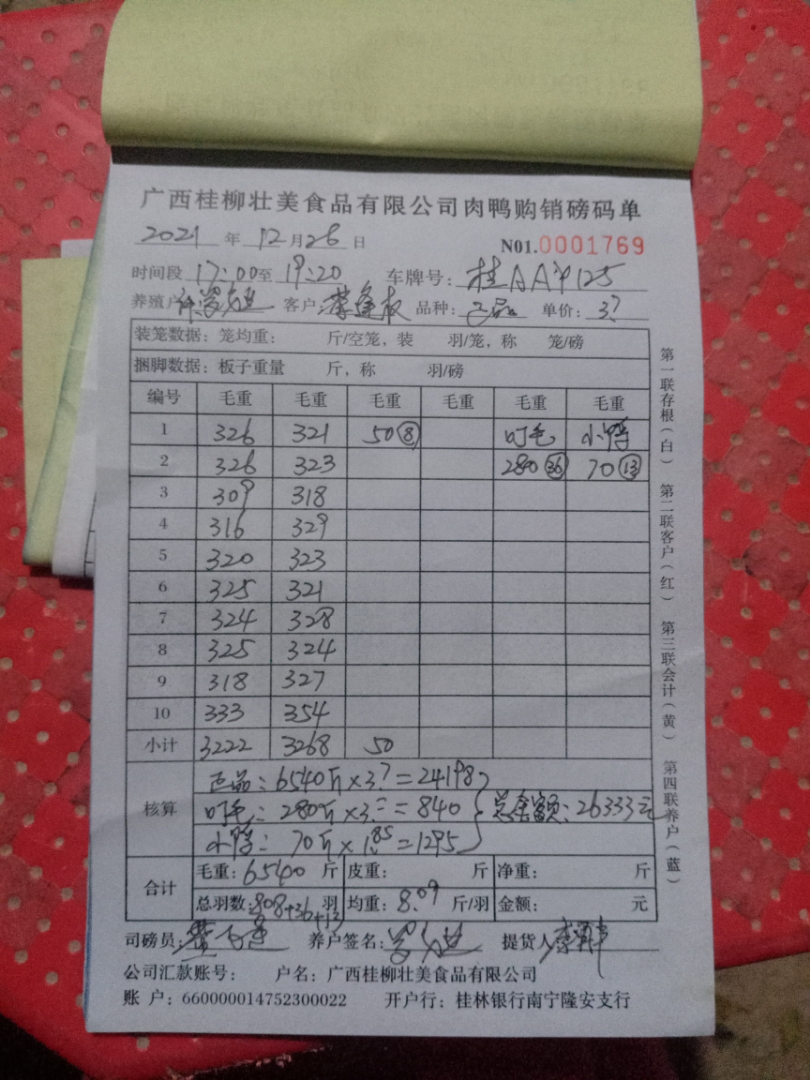 广西桂柳壮美食品有限公司肉鸭购销磅码单
2021 年 12 月 26 日 N01.0001769
时间段 17:00 至 19:20 车牌号: 桂AAY125
养殖户 客户: 品种: 正品 单价: 3.7
装笼数据: 笼均重: 斤/空笼, 装 羽/笼, 称 笼/磅
捆脚数据: 板子重量 斤, 称 羽/磅
编号 毛重 毛重 毛重 毛重 毛重 毛重
1 326 321 50⑧ 叮毛 小鸭
2 326 323 280㊱ 70⑬
3 309 318
4 316 329
5 320 323
6 325 321
7 324 328
8 325 324
9 318 327
10 333 354
小计 3222 3268 50
正品: 6540斤×3.7=24198
核算 叮毛: 280斤×3.0=840 总金额: 26333元
小鸭: 70斤×1.85=1295
合计 毛重: 6540 斤 皮重: 斤 净重: 斤
总羽数: 808+36+13 羽 均重: 8.09 斤/羽 金额: 元
司磅员: 养户签名: 提货人
公司汇款账号: 户名: 广西桂柳壮美食品有限公司
账 户: 660000014752300022 开户行: 桂林银行南宁隆安支行
第一联存根(白) 第二联客户(红) 第三联会计(黄) 第四联养户(蓝)